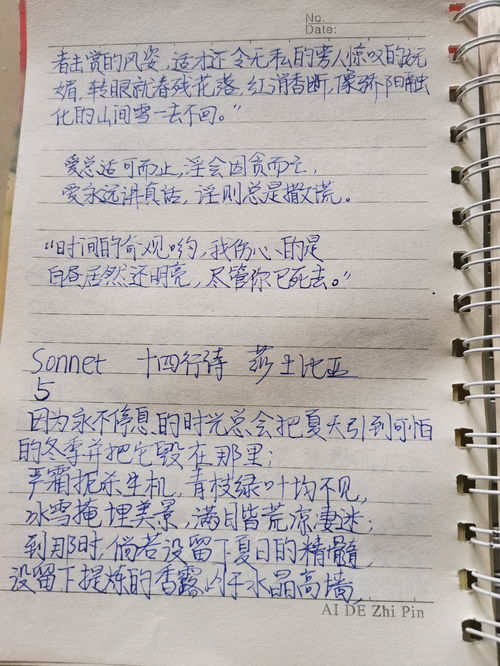 No.
Date:
者击赏的风姿，适才还令无私的旁人惊叹的妩
媚，转眼就春残花落，红消香断，像骄阳融
化的山间雪一去不回。”
爱总适可而止，淫会因贪而亡，
爱永远讲真话，淫则总是撒谎。
“时间的奇观哟，我伤心的是
白昼居然还明亮，尽管你已死去。”
Sonnet 十四行诗 莎士比亚
5
因为永不停息的时光总会把夏天引到可怕
的冬季并把它毁在那里；
严霜扼杀生机，青枝绿叶均不见，
冰雪掩埋美景，满目皆荒凉凄迷；
到那时，倘若没留下夏日的精髓，
没留下提炼的香露囚于水晶高墙，
AI DE Zhi Pin